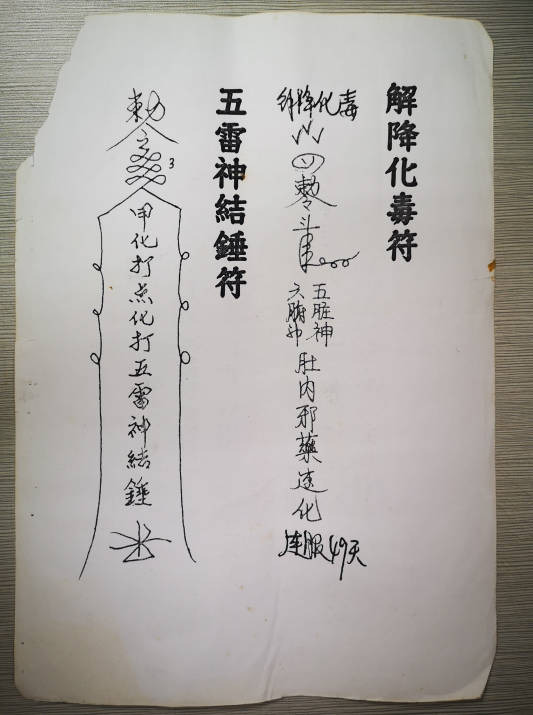 解降化毒符
解降化毒
四
斗
五脏神
六腑神
肚内邪藥速化
連服49天
五雷神結錘符
勅令
3
甲化打点化打五雷神結錘